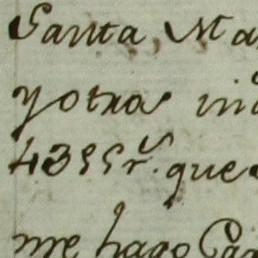 Santa, Ma
y otras in
4355 r.^s que
me hago Ca